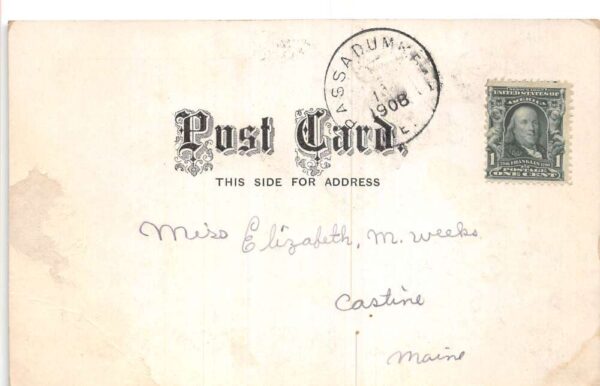 PASSADUMKEAG
13
1908
ME.
SERIES 1902
UNITED STATES OF
AMERICA
1 FRANKLIN 1
POSTAGE
ONE CENT
Post Card.
THIS SIDE FOR ADDRESS
Miss Elizabeth, M. Weeks
Castine
Maine